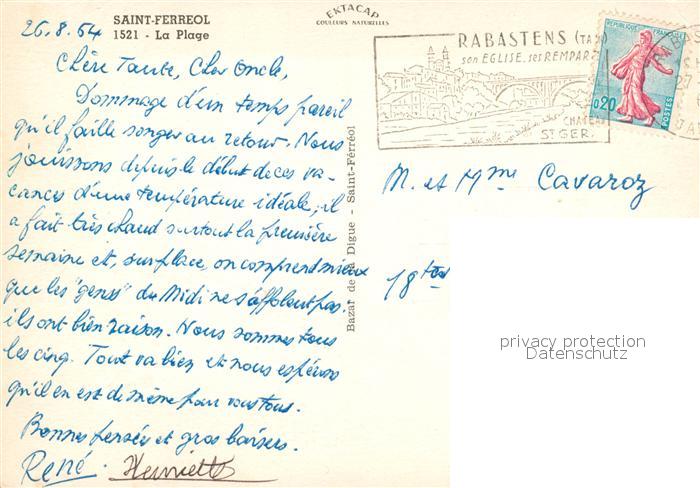 26.8.64
SAINT-FERREOL
1521 - La Plage
EKTACAP
COULEURS NATURELLES
Chère Tante, Cher Oncle,
Dommage d'un temps pareil
qu'il faille songer au retour. Nous
jouissons depuis le début de ces va-
cances d'une température idéale; il
a fait très chaud surtout la première
semaine et, sur place, on comprend mieux
que les "gens" du Midi ne s'affolent pas.
ils ont bien raison. Nous sommes tous
les cinq. Tout va bien et nous espérons
qu'il en est de même pour vous tous.
Bonnes pensées et gros baisers.
René. Henriette
Bazar de la Digue - Saint-Férréol
RABASTENS (TARN)
son EGLISE, ses REMPARTS
CHATEAU
St GER.
REPUBLIQUE FRANÇAISE
0,20
POSTES
RABAS
M. et Mme Cavaroz
privacy protection
Datenschutz